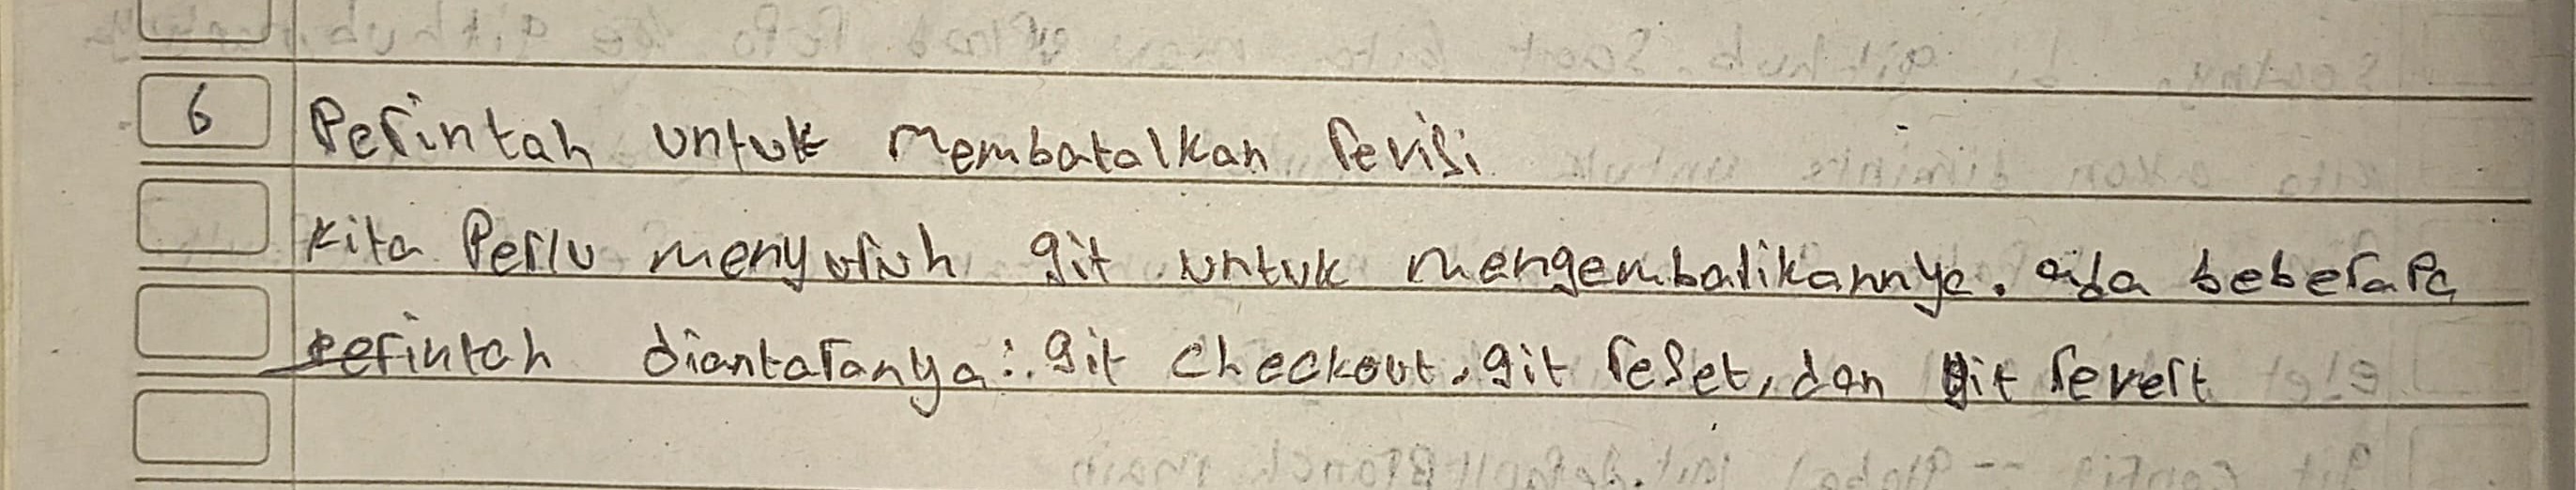 6 Perintah untuk membatalkan revisi
kita Perlu menyuruh git untuk mengembalikannya. ada beberapa
perintah diantaranya: git checkout, git reset, dan git revert